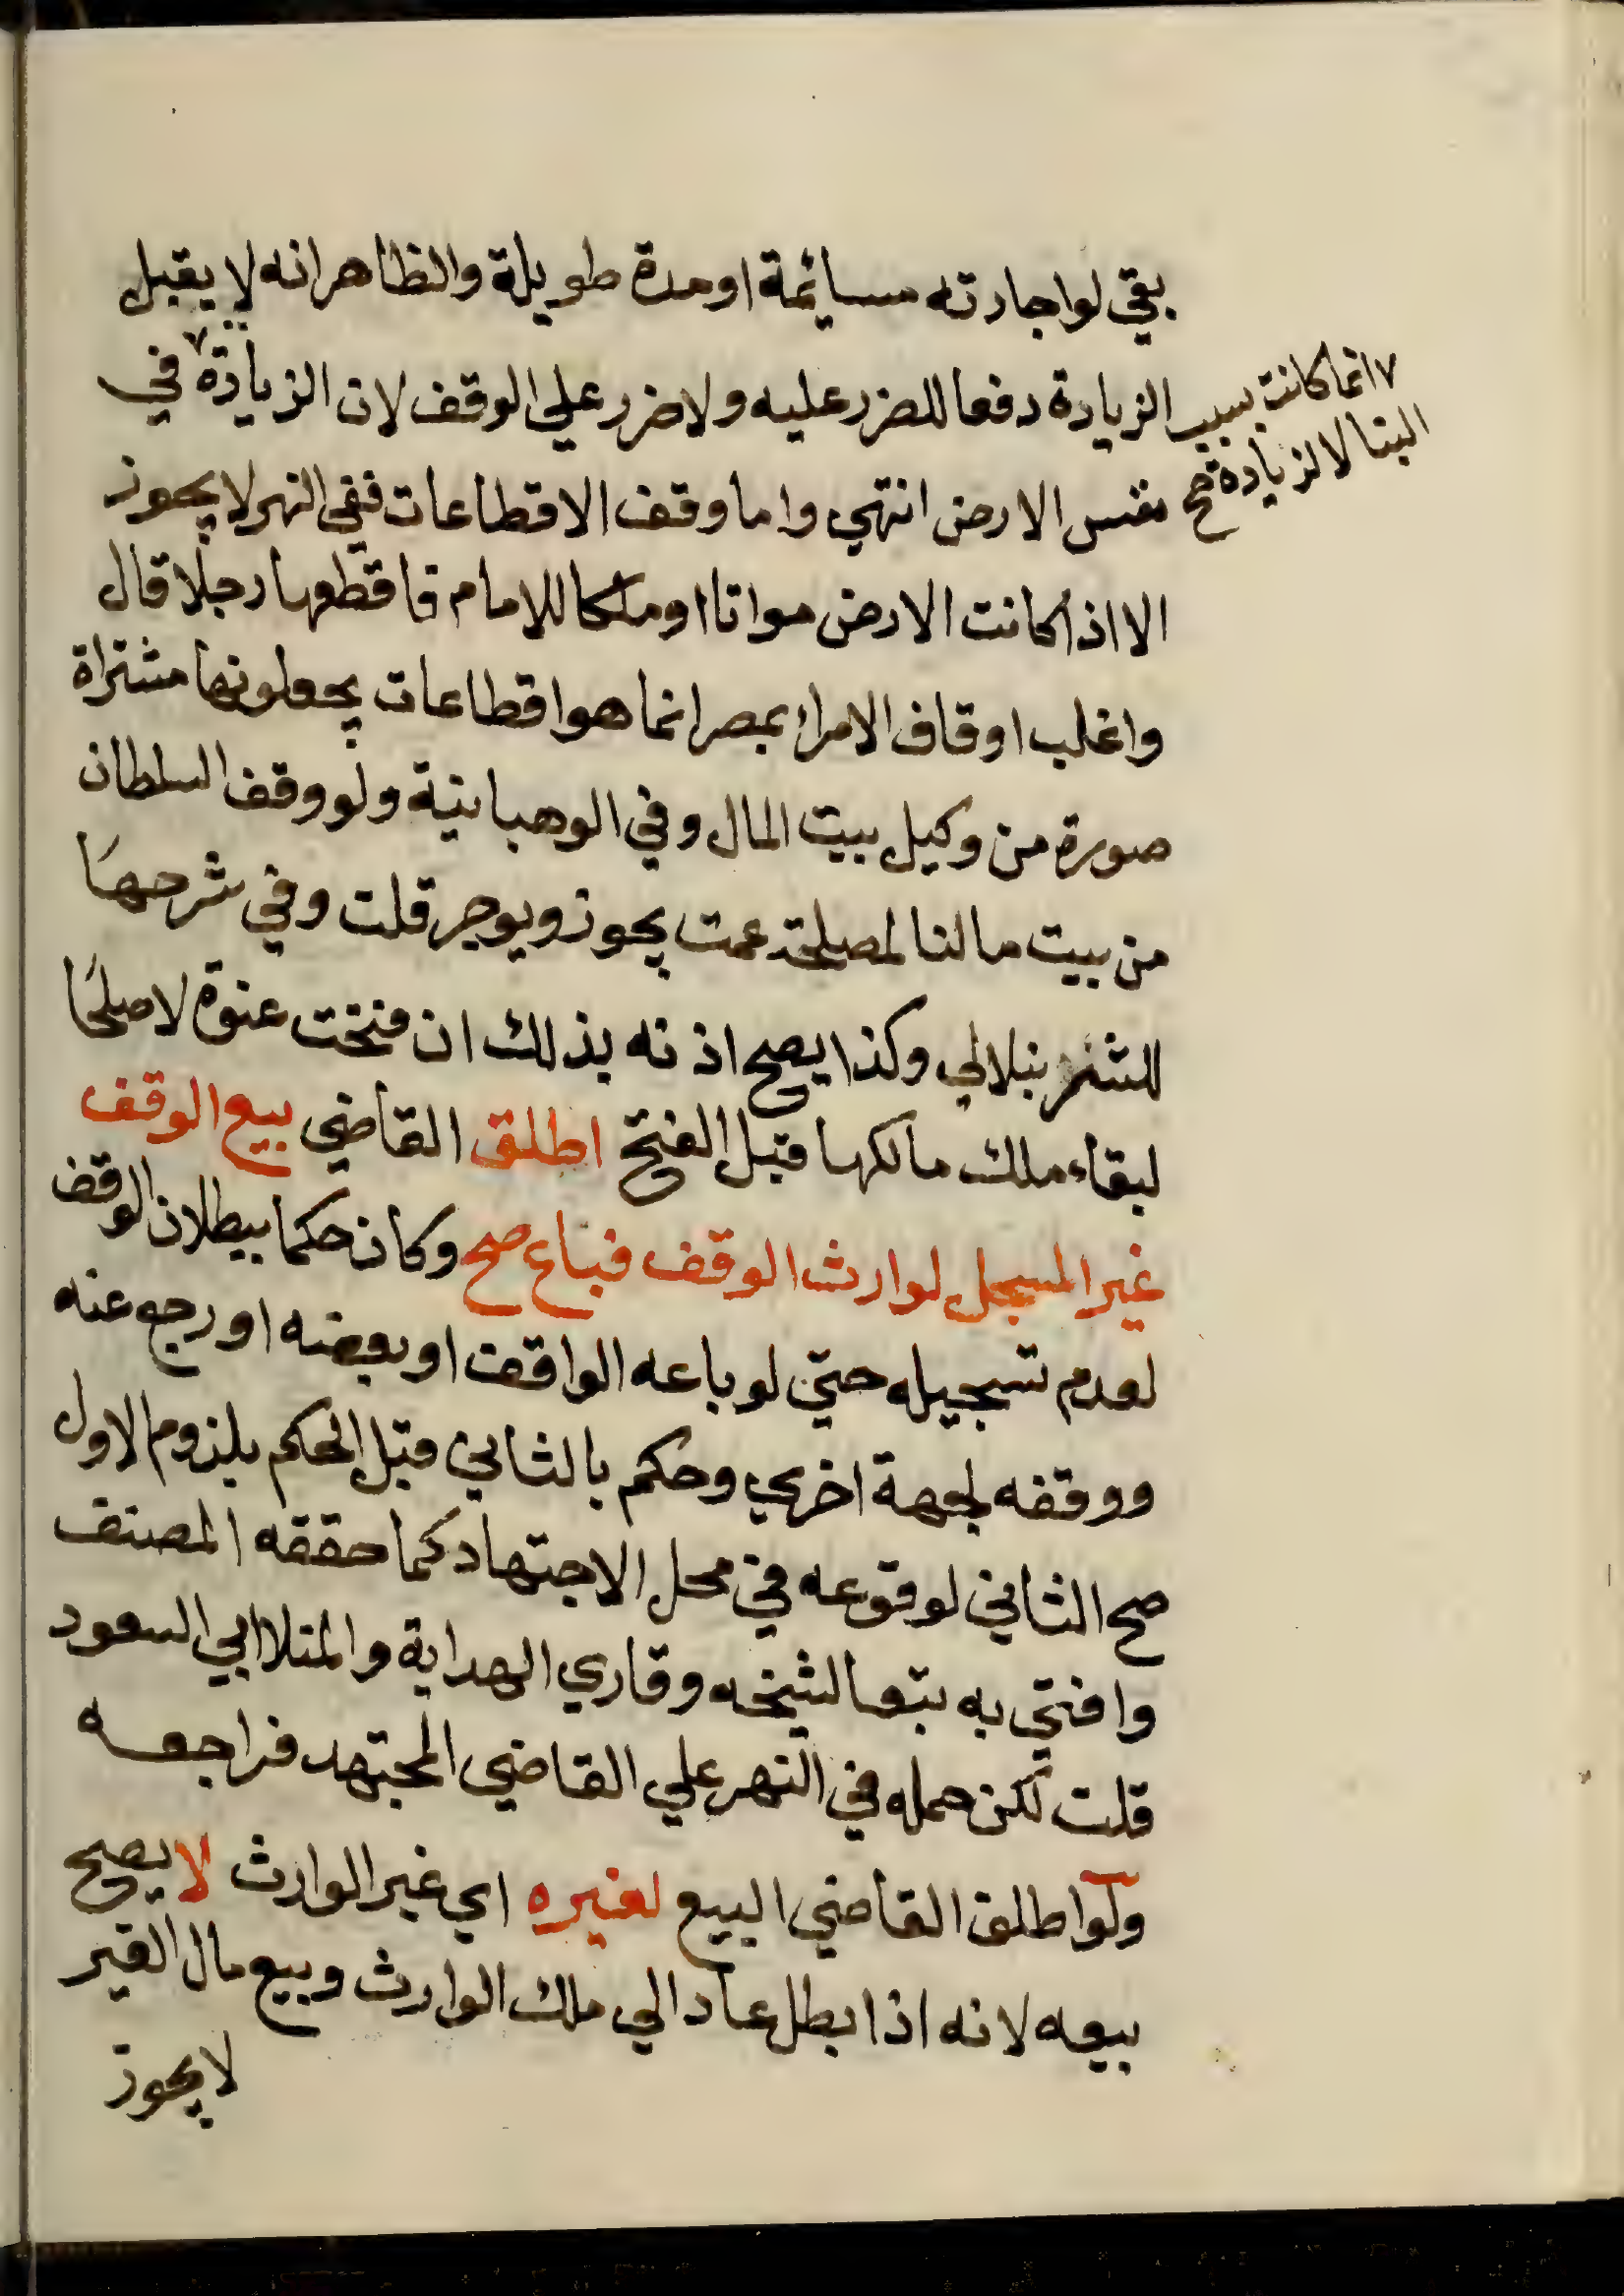 بقي لو اجارته مسائمة او مدة طويلة والظاهر انه لا يقبل
الزيادة دفعا للضرر عليه ولا ضرر علي الوقف لان الزيادة ٧ في
٧ انما كانت بسبب
البنا لا لزيادة صح
نفس الارض انتهي واما وقف الاقطاعات ففي النهر لا يجوز
الا اذا كانت الارض مواتا او ملكا للامام فاقطعها رجلا قال
واغلب اوقاف الامراء بمصر انما هو اقطاعات يجعلونها مشتراة
صورة من وكيل بيت المال وفي الوهبانية ولو وقف السلطان
من بيت مالنا لمصلحة عمت يجوز ويوجر قلت وفي شرحها
للشرنبلالي وكذا يصح اذنه بذلك ان فتحت عنوة لا صلحا
لبقاء ملك مالكها قبل الفتح اطلق القاضي بيع الوقف
غير المسجل لوارث الوقف فباع صح وكان حكما ببطلان الوقف
لعدم تسجيله حتي لو باعه الواقف او بعضه او رجع عنه
ووقفه لجهة اخري وحكم بالثاني قبل الحكم بلزوم الاول
صح الثاني لوقوعه في محل الاجتهاد كما حققه المصنف
وافتي به تبعا لشيخه وقاري الهداية والمنلا ابي السعود
قلت لكن حمله في النهر علي القاضي المجتهد فراجعه
ولو اطلق القاضي البيع لغيره اي غير الوارث لا يصح
بيعه لانه اذا بطل عاد الي ملك الوارث وبيع مال الغير
لا يجوز